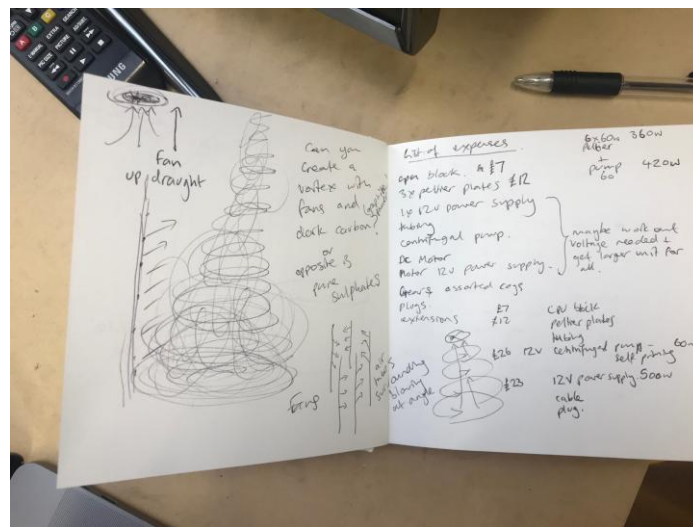 SAMSUNG
Fan
up draught
Can you
create a
vortex with
fans and
dark carbon?
or
opposite is
pure sulphates
air
tubes
surrounding
blowing
at angle
List of expenses.
open block. £7
3x peltier plates £12
1x 12v power supply
tubing
centrifugal pump.
DC Motor
Motor 12v power supply.
Gears assorted cogs
plugs.
extensions
maybe work out
voltage needed &
get larger unit for
all.
6x60w 360w
Peltier
+
pump
60
420w
£7 CPU block
£12 peltier plates
tubing
£26 12v centrifugal pump - 60w
self priming
£23 12v power supply 500w
cable
plug.